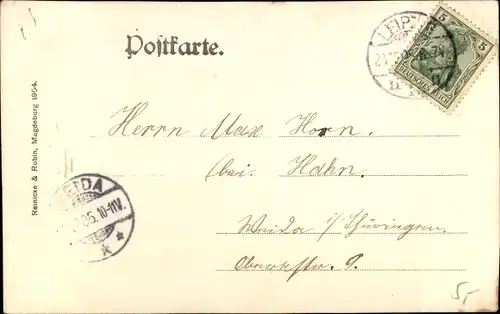 Postkarte.
LEIPZIG
5 5
DEUTSCHES REICH
Herrn Max Horn.
(bei Hahn.
Weida i/Thüringen.
9.
WEIDA
.05. 10-11V.
* *
Reinicke & Rubin, Magdeburg 1904.
5,-